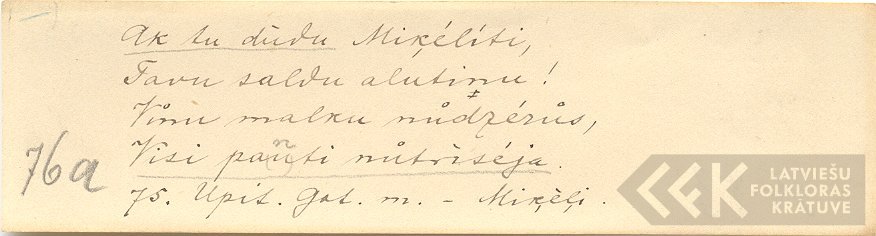 Ak tu dūdu Miķélíti,
Tavu saldu alutinu!
Vínu malku nůdzérůs,
Visi panti nůtrìséja.
76a
75. Upit. Gat. m. – Miķeļi.
LATVIEŠU
FOLKLORAS
KRĀTUVE